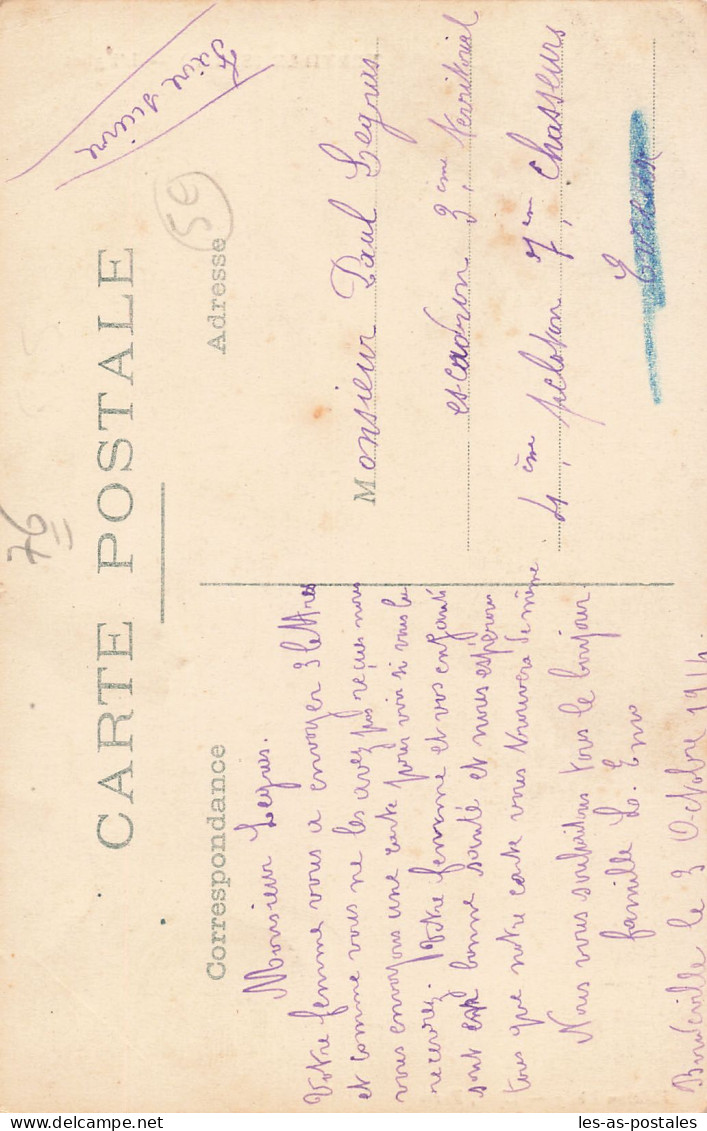 CARTE POSTALE
Correspondance
Monsieur Legras.
Votre femme vous a envoyer 3 lettres
et comme vous ne les avez pas reçues nous
vous envoyons une carte pour voir si vous la
recevrez. Votre femme et vos enfants
sont en bonne santé et nous espérons
tous que notre carte vous trouvera de même.
Nous vous souhaitons tous le bonjour.
famille L. Eno
le 3 Octobre 1914.
Adresse
Faire suivre
59
Monsieur Paul Legras
escadron 3ème Territorial
4ème peloton 7em chasseurs
76
les-as-postales